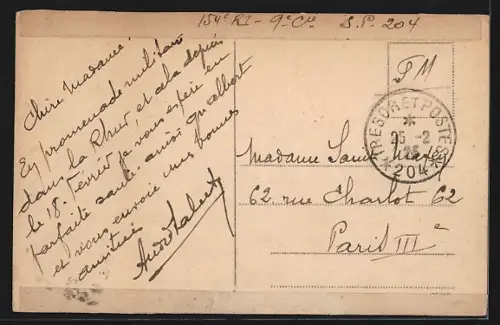 154e RI - 9e Cie S.P. 204
Chère Madame,
En promenade militaire
dans la Rhur, et cela depuis
le 18 Février je vous espère en
parfaite santé ainsi qu'albert
et vous envoie mes bonnes
amitiés
FM
TRESOR ET POSTES
25 - 2
204
Madame
62, rue Charlot 62
Paris IIIe